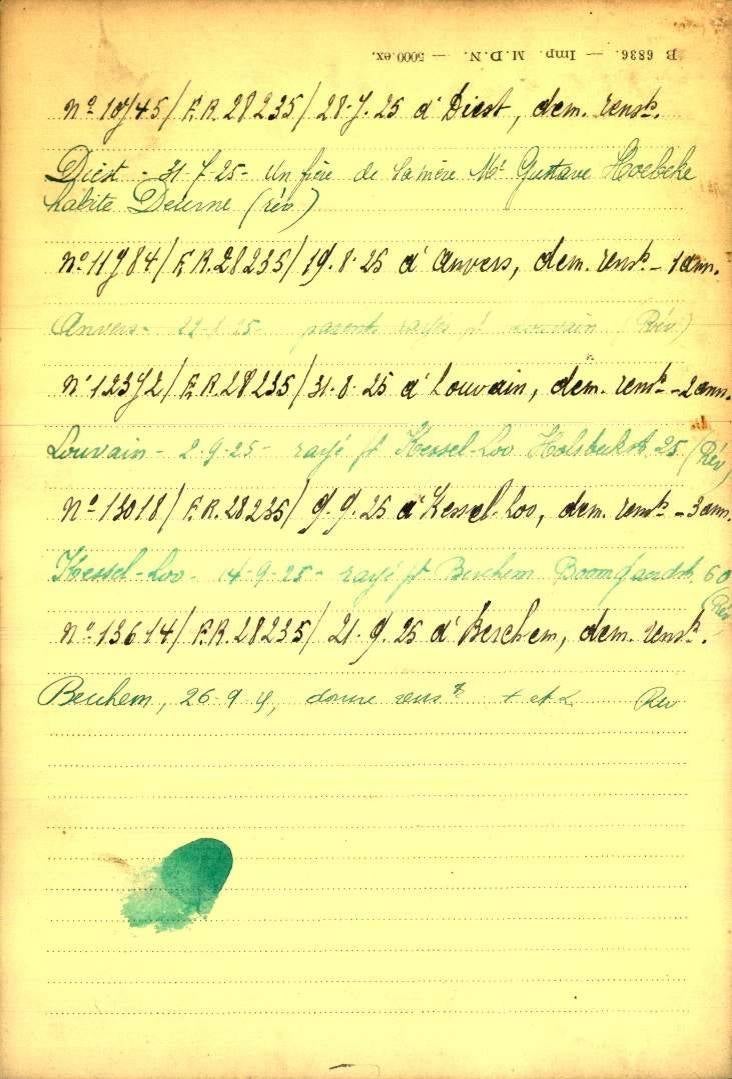 B 6836. — Imp. M.D.N. — 5000 ex.
Nº 10745/E.R. 28235/28-7-25 à Diest, dem. rensts.
Diest - 31-7-25- Un frère de la mère Mr Gustave Hoebeke
habite Deurne (rév)
Nº 11984/E.R. 28235/19-8-25 à Anvers, dem. rensts - 1 ann.
Anvers - 25 - parents rayés pr Louvain (Rév)
Nº 12372/E.R. 28235/31-8-25 à Louvain, dem. rensts - 2 ann.
Louvain - 2-9-25 - rayé pr Kessel-Loo 25 (Rév)
Nº 13018/E.R. 28235/9-9-25 à Kessel-Loo, dem. rensts - 3 ann.
Kessel-Loo - 14-9-25 - rayé pr Berchem 60
(Rév
Nº 13614/E.R. 28235/21-9-25 à Berchem, dem. rensts.
Berchem, 26-9 donne rensts Rév